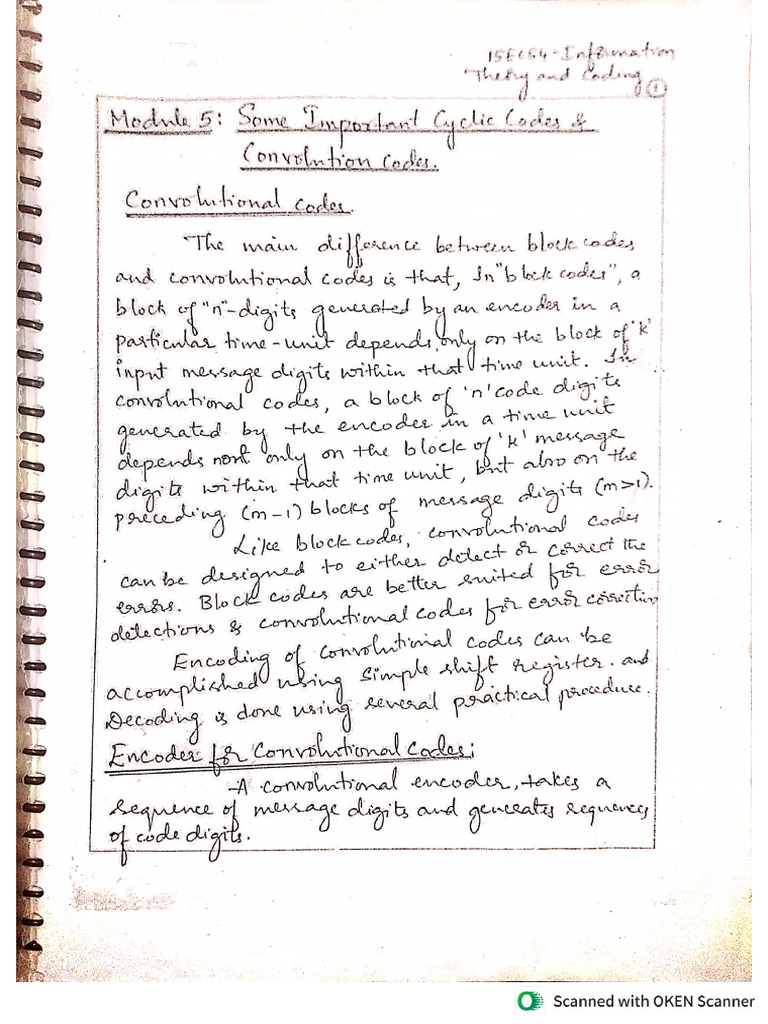 15EC54-Information
Theory and Coding 1
Module 5: Some Important Cyclic Codes &
Convolution codes.
Convolutional codes.
The main difference between block codes
and convolutional codes is that, In "block codes", a
block of "n"-digits generated by an encoder in a
particular time-unit depends only on the block of 'k'
input message digits within that time unit. In
convolutional codes, a block of 'n' code digits
generated by the encoder in a time unit
depends not only on the block of 'k' message
digits within that time unit, but also on the
preceding (m-1) blocks of message digits (m>1).
Like block codes, convolutional codes
can be designed to either detect or correct the
errors. Block codes are better suited for error
detections & convolutional codes for error correction
Encoding of convolutional codes can be
accomplished using simple shift register. and
Decoding is done using several practical procedure.
Encoder for Convolutional Codes:
A convolutional encoder, takes a
sequence of message digits and generates sequences
of code digits.
Scanned with OKEN Scanner